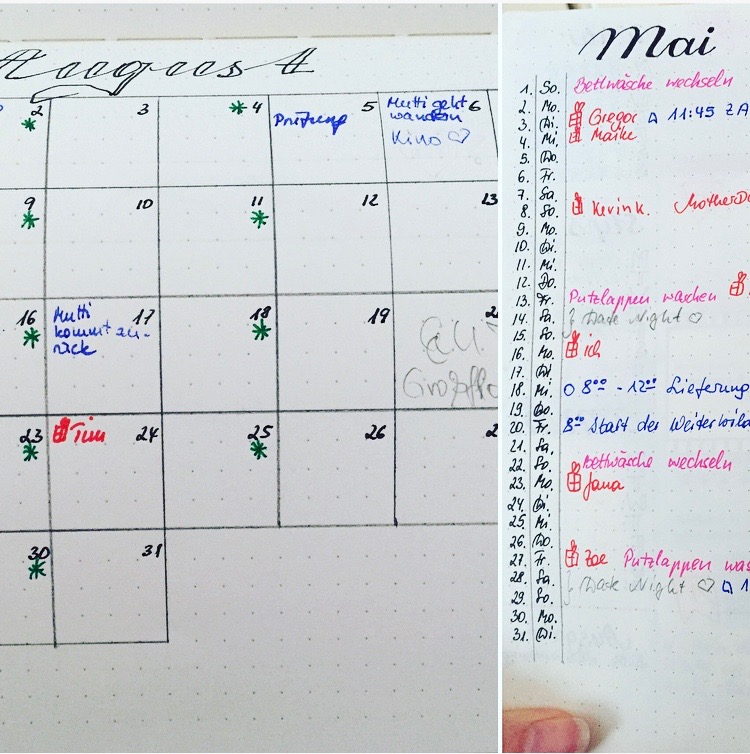 August
2 3 4 5 6
Prüfung
Mutti geht
wandern
Kino ♡
9 10 11 12 13
16 17 18 19
Mutti
kommt zu-
rück
23 24 25 26
Tim
30 31
Mai
1. So. Bettwäsche wechseln
2. Mo.
3. Di. Gregor 11:45
4. Mi. Maike
5. Do.
6. Fr.
7. Sa.
8. So. Kevin K.
9. Mo.
10. Di.
11. Mi.
12. Do.
13. Fr. Putzlappen waschen
14. Sa. Date Night ♡
15. So.
16. Mo. ich
17. Di.
18. Mi. 8⁰⁰ - 12⁰⁰ Lieferung
19. Do.
20. Fr. 8⁰⁰ Start der
21. Sa.
22. So. Bettwäsche wechseln
23. Mo. Jana
24. Di.
25. Mi.
26. Do.
27. Fr. Zoe Putzlappen
28. Sa. Date Night ♡
29. So.
30. Mo.
31. Di.